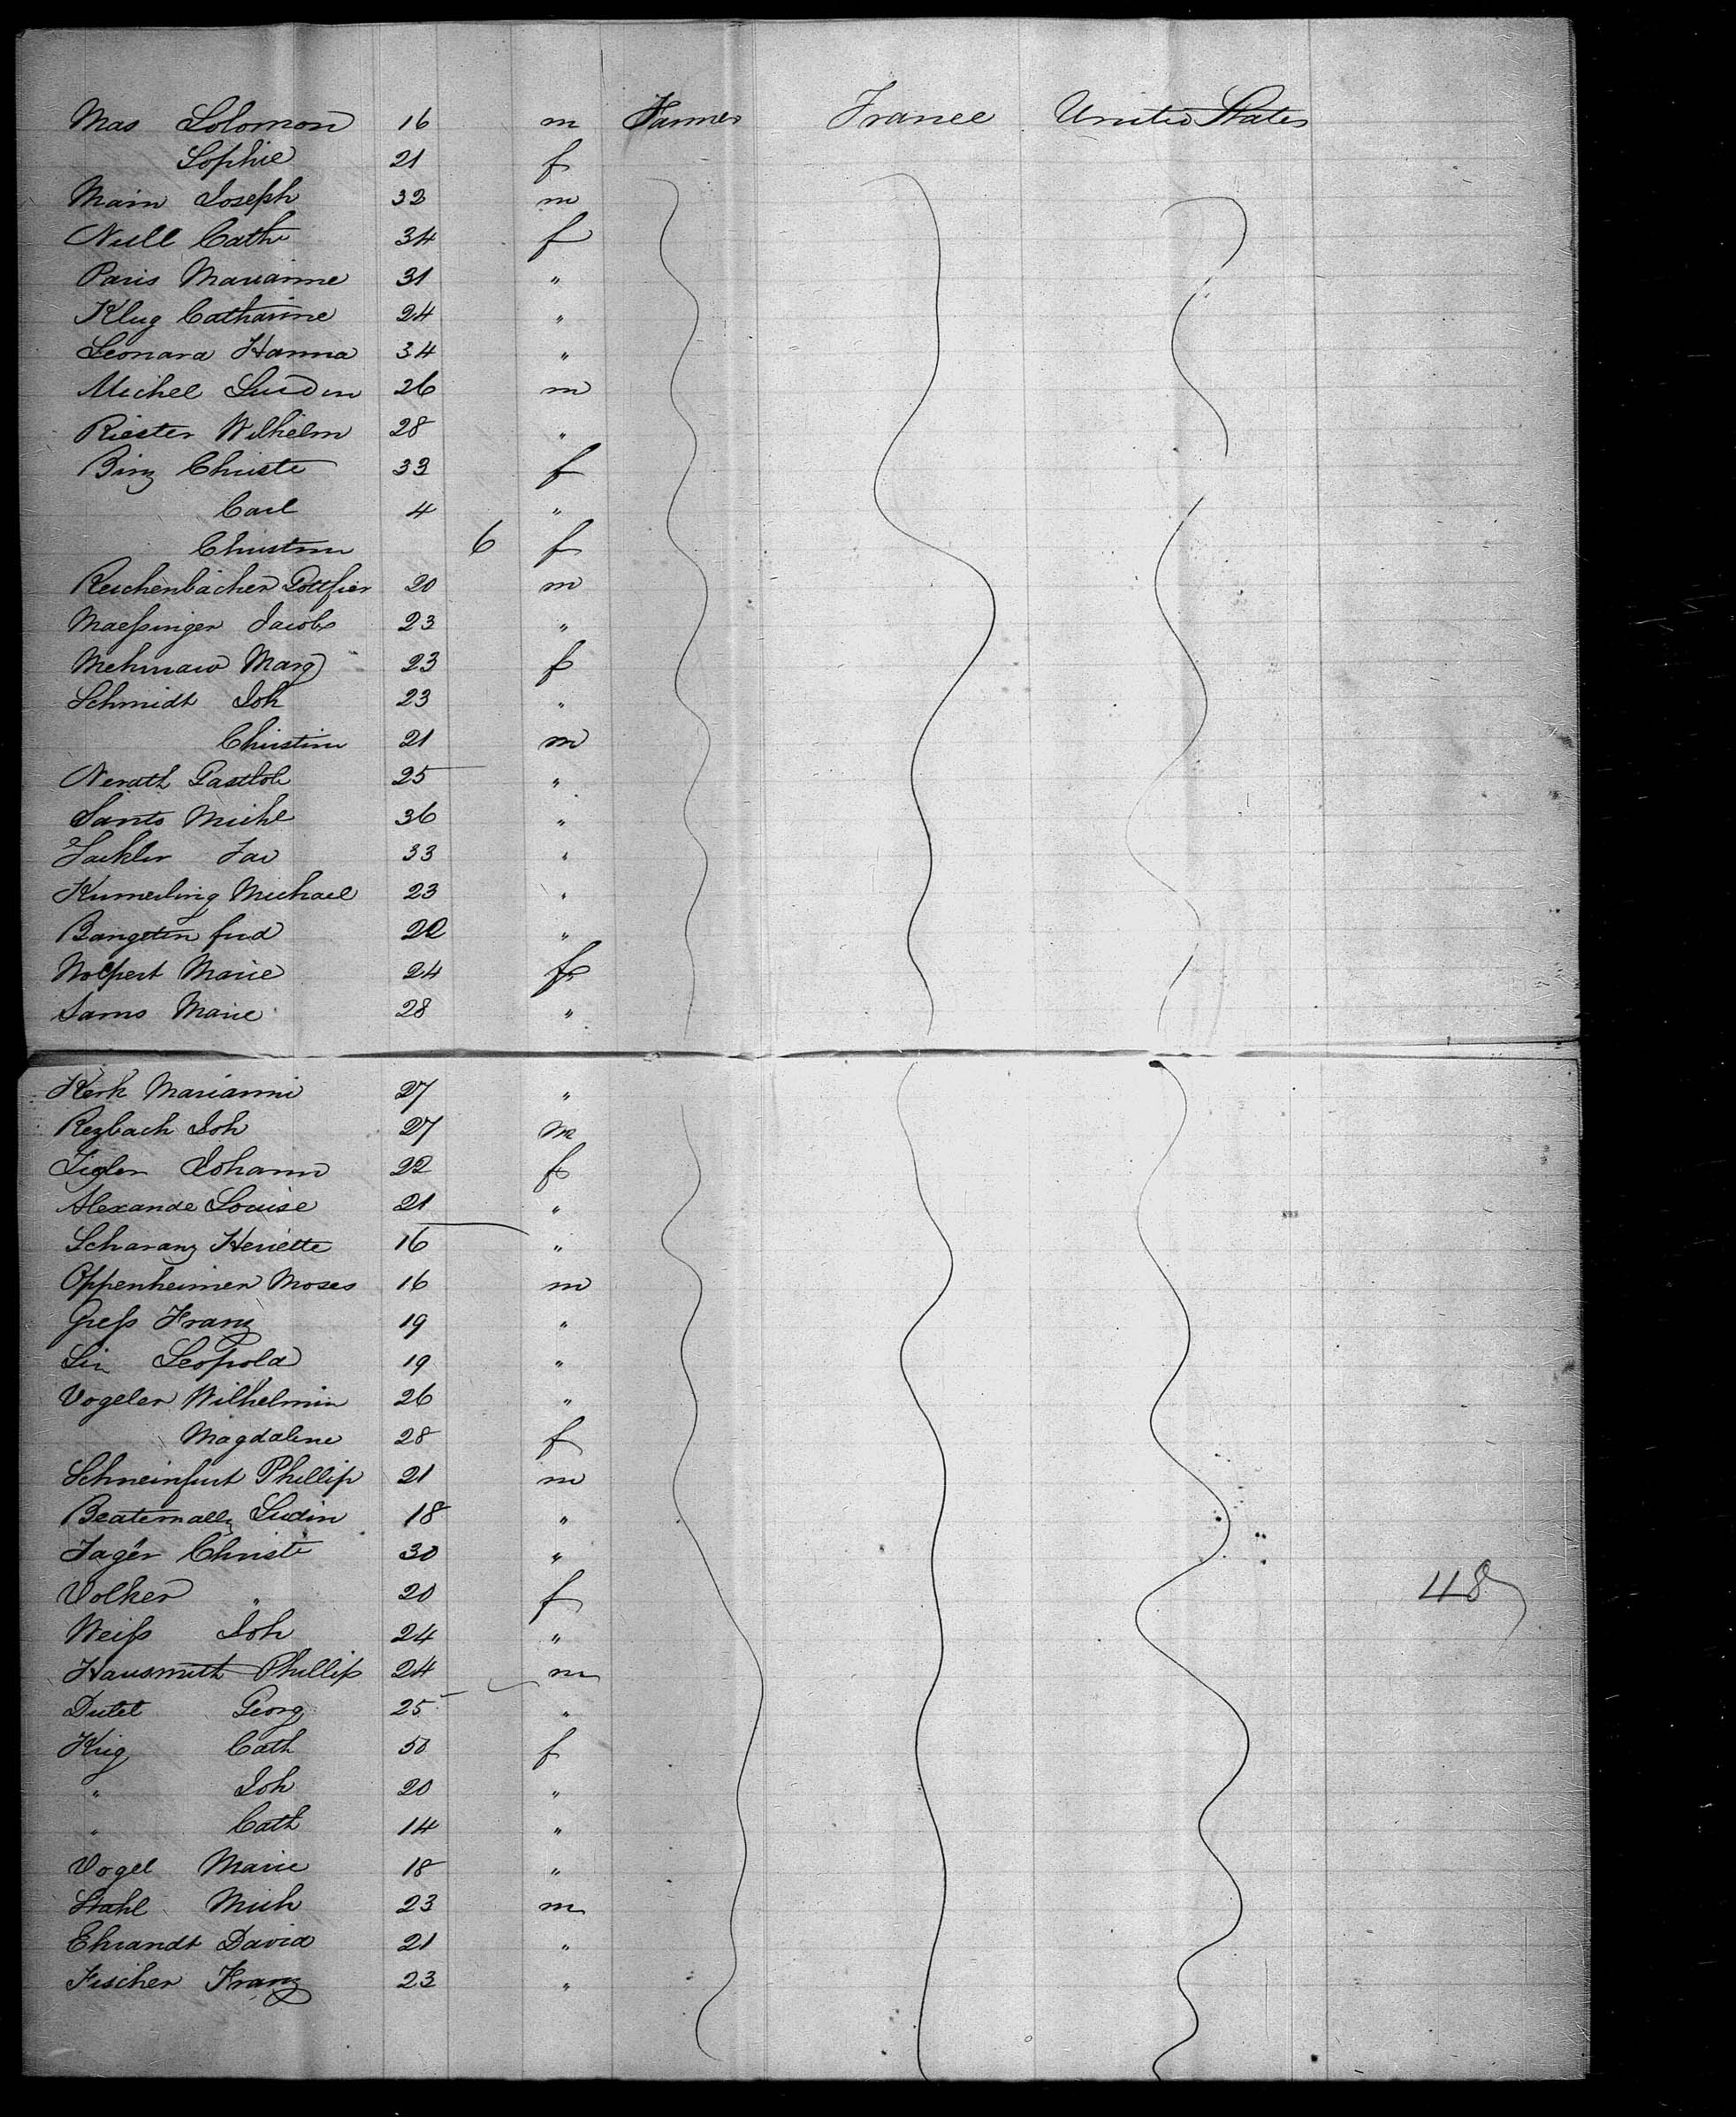 Mas Solomon 16 m Farmer France United States
Sophie 21 f
Main Joseph 32 m
Null Cath 34 f
Paris Marianne 31 "
Klug Catharine 24 "
Leonara Hanna 34 "
Michel 26 m
Riester Wilhelm 28 "
Binz Christe 33 f
Carl 4 "
Christin 6 f
Reichenbacher Gottfier 20 m
Maeßinger Jacob 23 "
Mehmaw Marg 23 f
Schmidt Joh 23 "
Christine 21 m
Nerath Gastlob 25 "
Santo Michl 36 "
Jac 33 "
Kumerling Michael 23 "
Bangeten 22 "
Wolpert Marie 24 f
Sams Marie 28 "
Kerk Marianni 27 "
Rezbach Joh 27 m
Johann 22 f
Alexande Louise 21 "
Scharanz Heriette 16 "
Oppenheimer Moses 16 m
Greß Franz 19 "
Leopold 19 "
Vogeler Wilhelmin 26 "
Magdaline 28 f
Schneinfurt Phillip 21 m
18 "
Jager Christi 30 "
Volker " 20 f
Weiß Joh 24 "
Hausmuth Phillip 24 m
Dutel Georg 25 "
Krig Cath 50 f
" Joh 20 "
" Cath 14 "
Vogel Marie 18 "
Stahl Mich 23 m
Ehrandt David 21 "
Fischer Franz 23 "
48